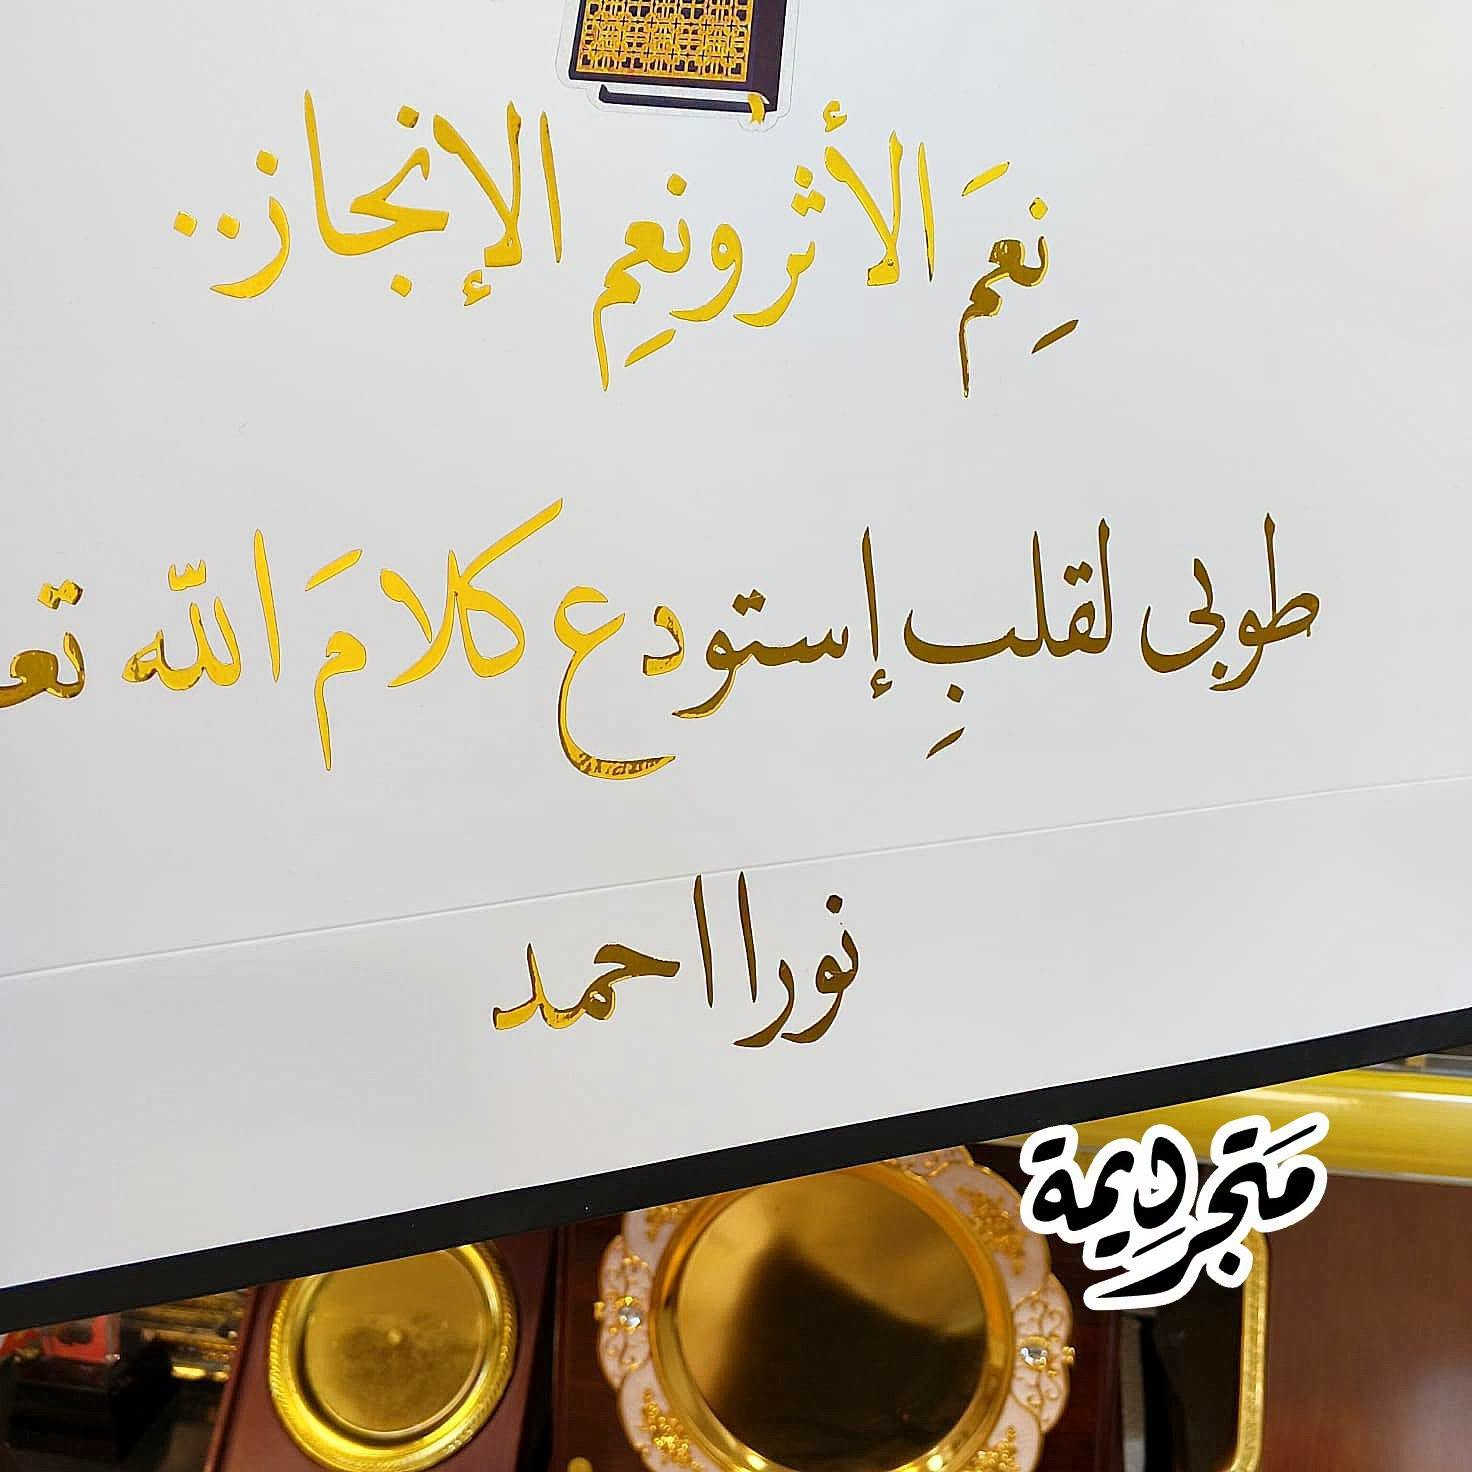 نِعمَ الأثر ونعِم الإنجاز..
طوبى لقلبِ إستودع كلامَ الله تعـ
نورا احمد
مَتجر ديمة